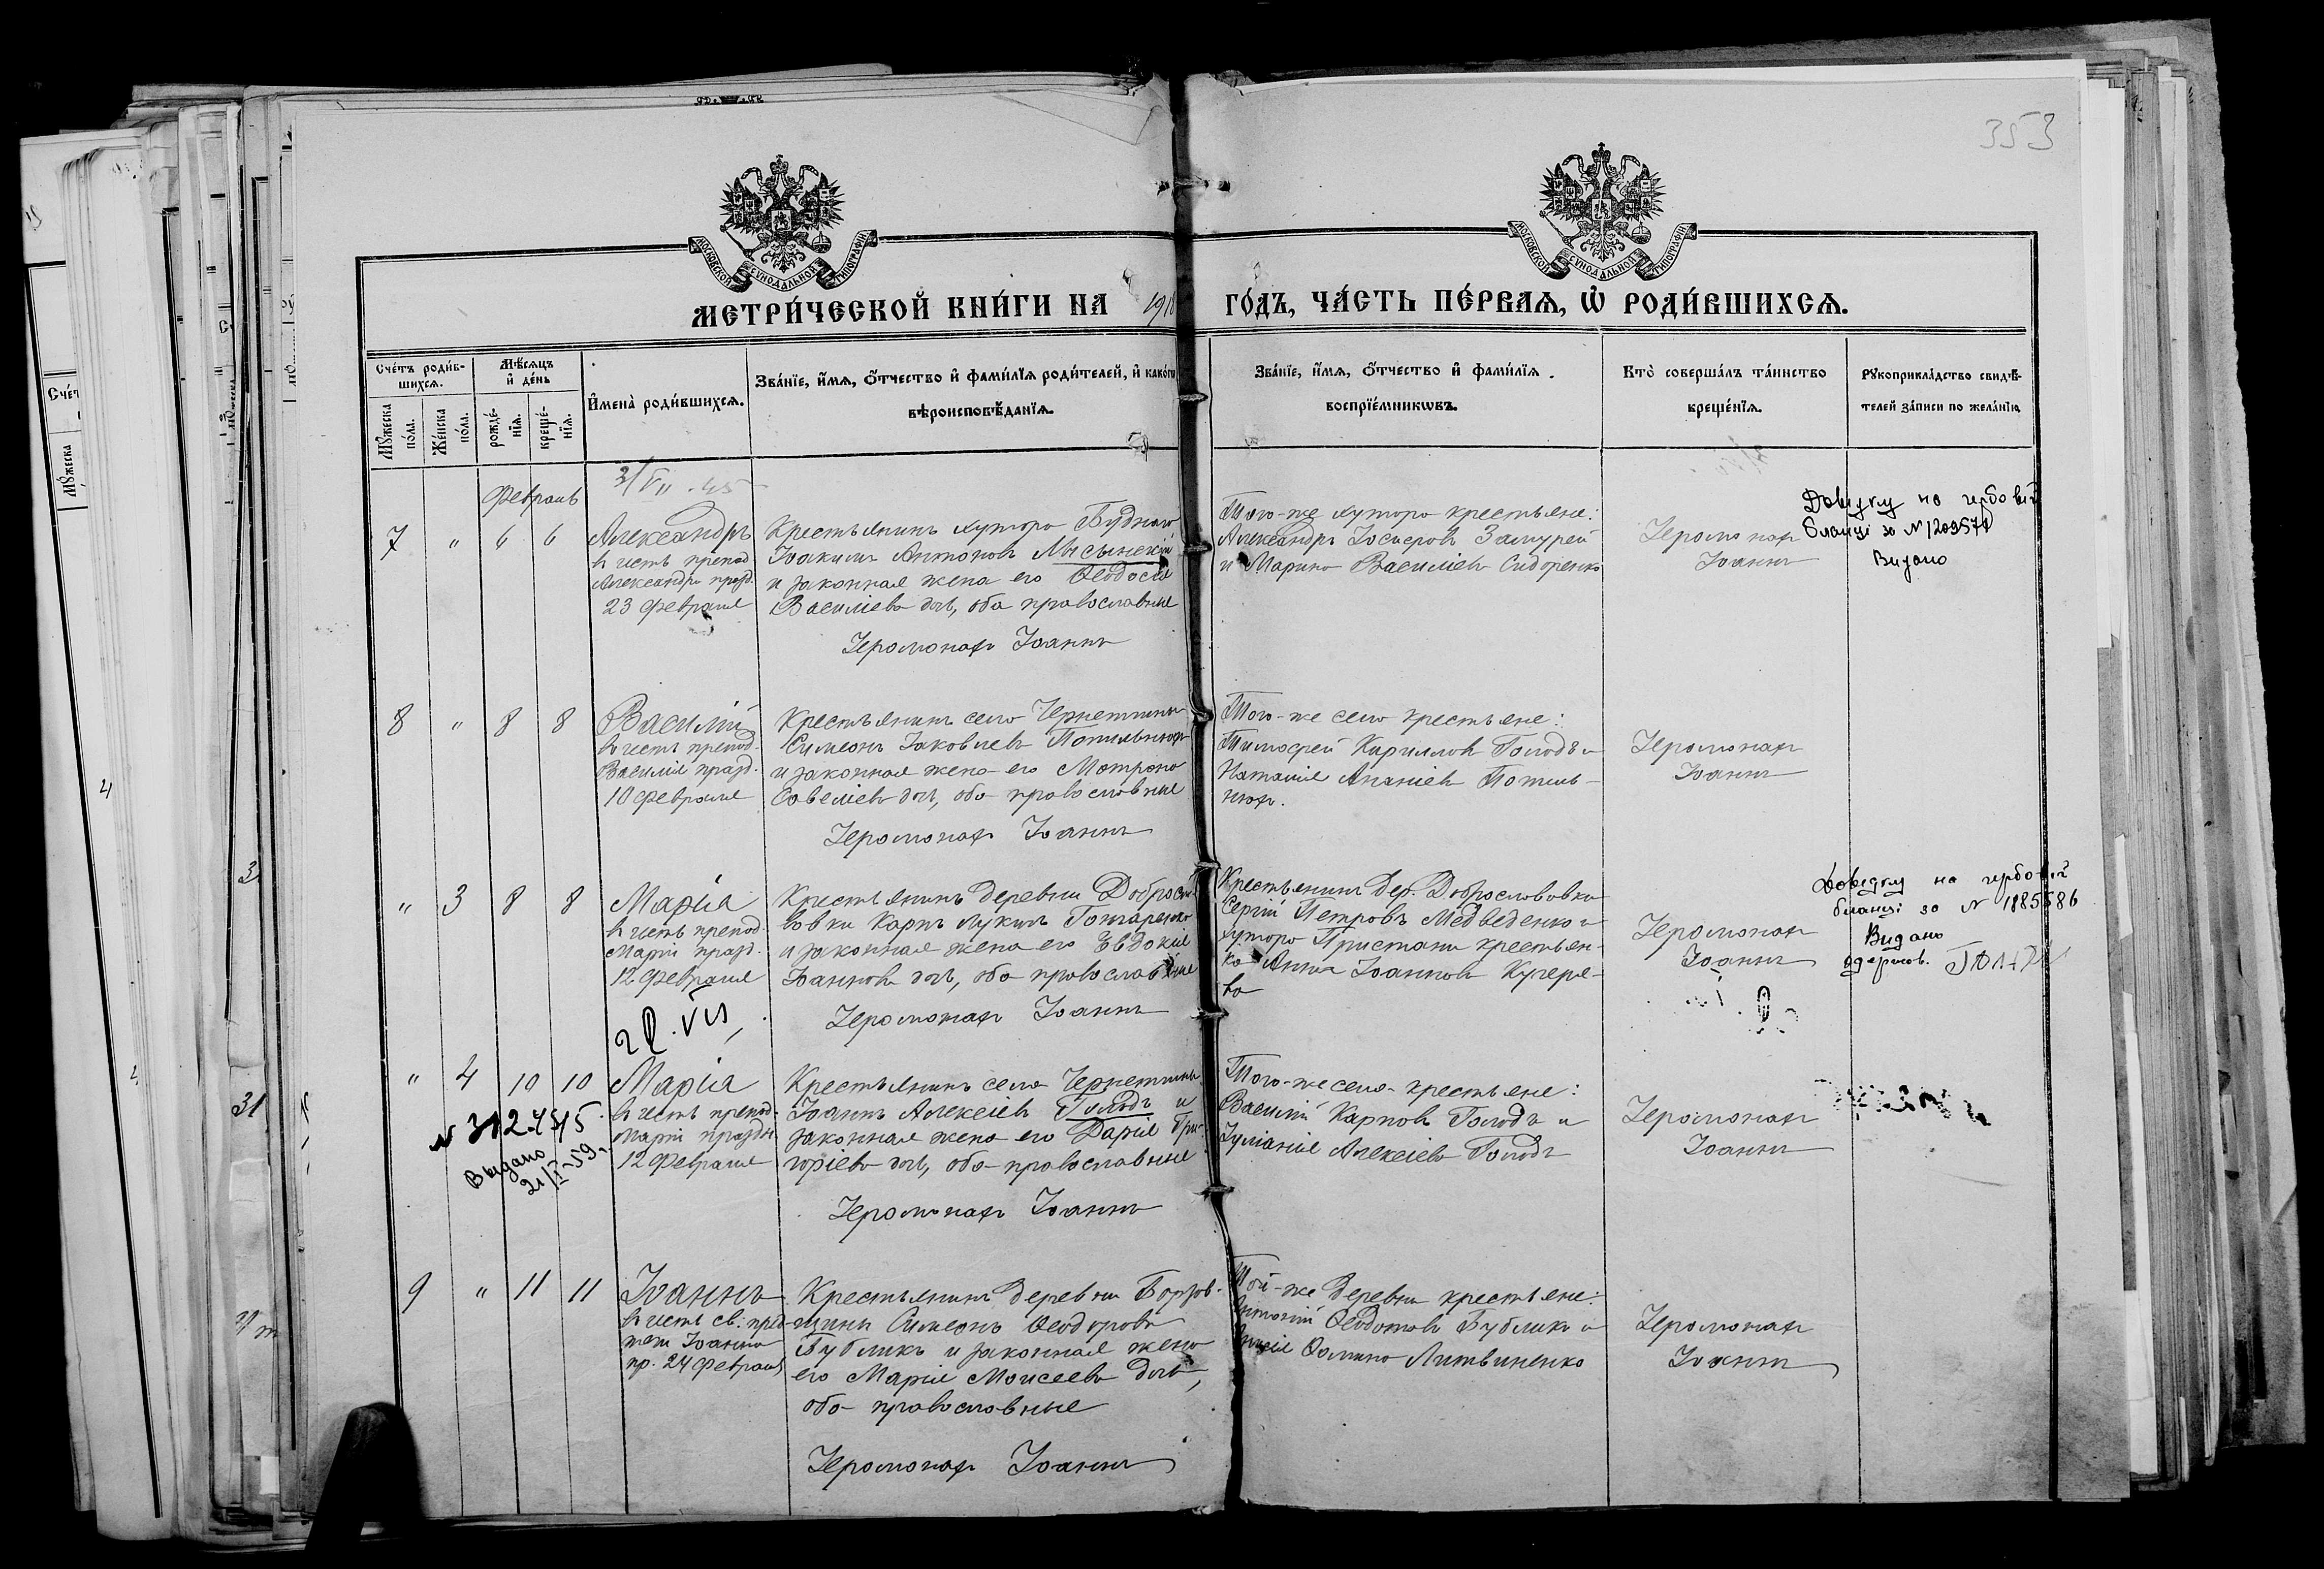 353
МОСКОВСКОЙ СѴНОДАЛЬНОЙ ТИПОГРАФІИ
МОСКОВСКОЙ СѴНОДАЛЬНОЙ ТИПОГРАФІИ
МЕТРИ́ЧЕСКОЙ КНИ́ГИ НА 191
ГО́ДЪ, ЧА́СТЬ ПЕ́РВАѦ, Ѡ҆ РОДИ́ВШИХСѦ.
Сче́тъ роди́в-
шихсѧ.
Мꙋ́жеска
по́ла.
Же́нска
по́ла.
Мѣ́сѧцъ
и҆ де́нь
рожде́-
нїѧ.
креще́-
нїѧ.
И҆мена̀ роди́вшихсѧ.
Зва́нїе, и҆́мѧ, ѻ҆́тчество и҆ фами́лїѧ роди́телей, и҆ како́гѡ
вѣроисповѣ́данїѧ.
Зва́нїе, и҆́мѧ, ѻ҆́тчество и҆ фами́лїѧ
воспрїе́мникѡвъ.
Кто̀ соверша́лъ та́инство
креще́нїѧ.
Рꙋкоприкла́дство свидѣ́-
телей за́писи по жела́нїю
Февраль
7 " 6 6
Александръ
в честь препод.
Александра празд.
23 февраля
Крестьянинъ хутора Буднаго
Іоакимъ Антоновъ Мысынскій
и законная жена его Ѳеодосія
Василіева дочь, оба православные
Іеромонахъ Іоаннъ
Того-же хутора крестьяне:
Александръ Іосифовъ
и Марина Василіева Сидоренко
Іеромонах
Іоаннъ
Довідку на гербовій
бланці за №
Видано
8 " 8 8
Василій
в честь препод.
Василія празд.
10 февраля
Крестьянинъ села Чернетчины
Симеонъ Іаковлевъ
и законная жена его Матрона
Савеліева дочь, оба православные
Іеромонахъ Іоаннъ
Того-же села крестьяне:
Тимофей Кирилловъ Голодъ и
Наталія Ананіева
Іеромонах
Іоаннъ
" 3 8 8
Марія
в честь препод.
Маріи празд.
12 февраля
Крестьянинъ деревни Добросло-
вовки Карпъ Лукинъ Гончаренко
и законная жена его Евдокія
Іоаннова дочь, оба православные
Іеромонахъ Іоаннъ
Крестьянинъ дер. Доброслововки
Сергій Петровъ Медведенко и
хутора Пристани крестьян-
ка Анна Іоаннова Кучеря-
ва
Іеромонах
Іоаннъ
Довідку на гербовій
бланці за № 1885586
Видано
" 4 10 10
Марія
в честь препод.
Маріи праздн.
12 февраля
Выдано
Крестьянинъ села Чернетчины
Іоаннъ Алексіевъ Голодъ и
законная жена его Дарія Гри-
горіева дочь, оба православные
Іеромонахъ Іоаннъ
Того-же села крестьяне:
Василій Карповъ Голодъ и
Іуліанія Алексіева Голодъ
Іеромонах
Іоаннъ
9 " 11 11
Іоаннъ
в честь св. пред-
течи Іоанна
пр. 24 февраля
Крестьянинъ деревни Борзов-
щины Симеонъ Ѳеодоровъ
Бубликъ и законная жена
его Марія Моисеева дочь,
оба православные
Іеромонахъ Іоаннъ
Той-же деревни крестьяне:
Антоній Ѳеодотовъ Бубликъ и
Ѳомина Литвиненко
Іеромонах
Іоаннъ